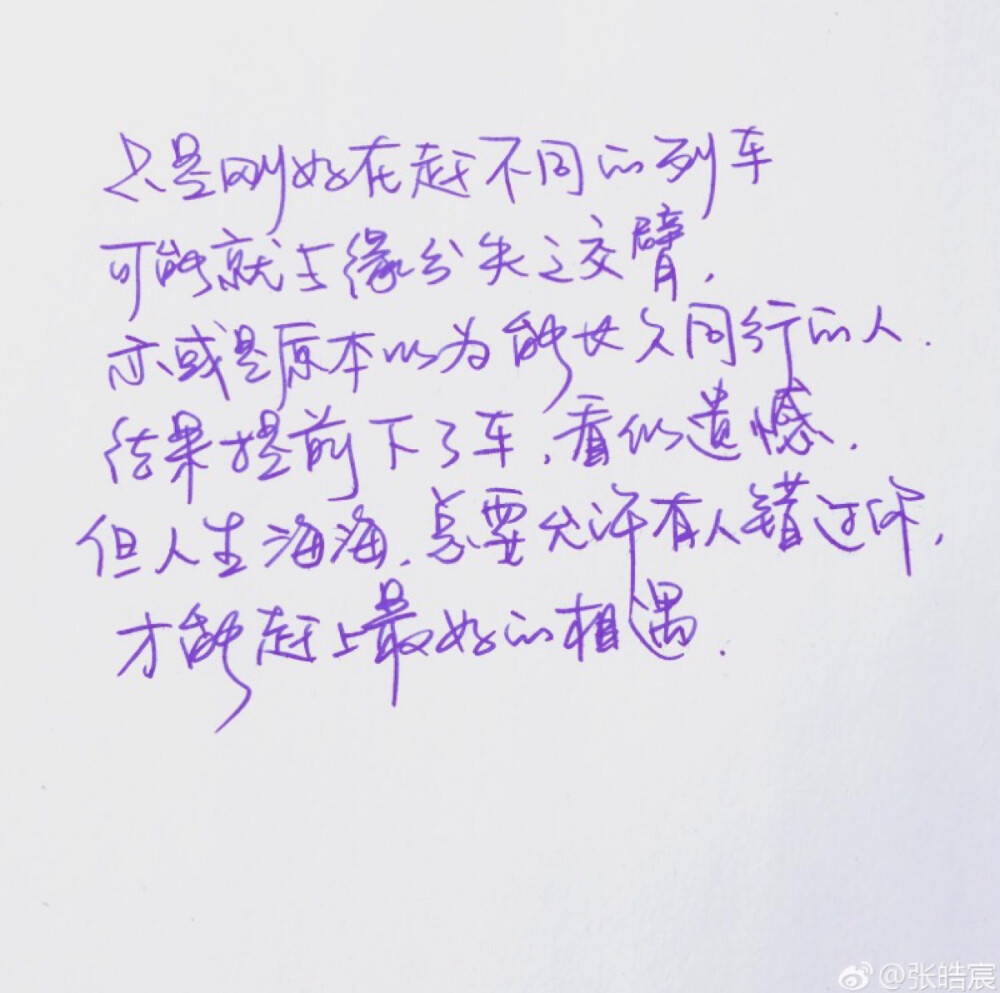 只是刚好在赶不同的列车
可能就与缘分失之交臂，
亦或是原本以为能长久同行的人.
结果提前下了车，看似遗憾.
但人生海海，总要允许有人错过你，
才能赶上最好的相遇.
@张皓宸